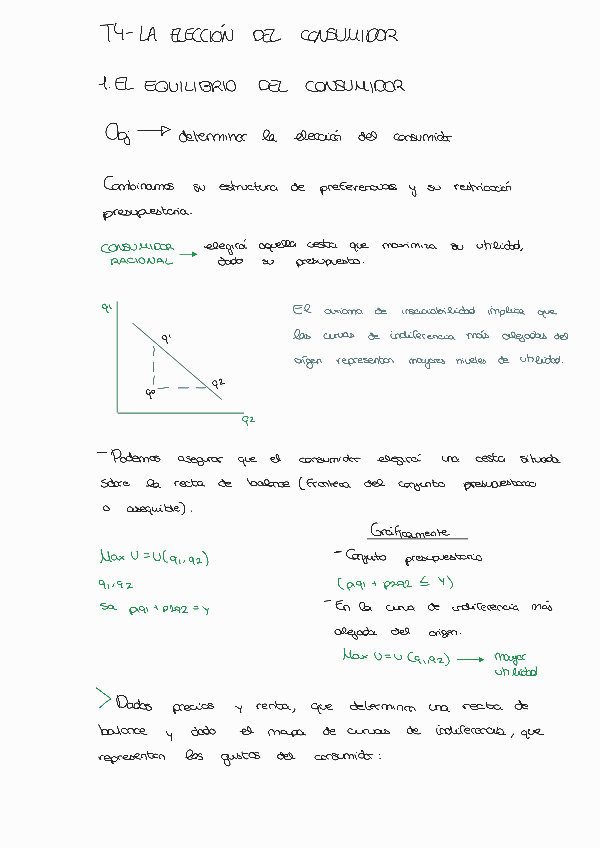 T4- LA ELECCIÓN DEL CONSUMIDOR
1. EL EQUILIBRIO DEL CONSUMIDOR
Obj → determinar la elección del consumidor
Combinamos su estructura de preferencias y su restricción
presupuestaria.
CONSUMIDOR RACIONAL → elegirá aquella cesta que maximiza su utilidad,
dado su presupuesto.
q1
El axioma de insaciabilidad implica que
las curvas de indiferencia más alejadas del
origen representan mayores niveles de utilidad.
q1
q2
q0
q2
- Podemos asegurar que el consumidor elegirá una cesta situada
sobre la recta de balance (frontera del conjunto presupuestario
o asequible).
Max U = U(q1, q2)
q1, q2
sa p1q1 + p2q2 = Y
Gráficamente
- Conjunto presupuestario
(p1q1 + p2q2 ≤ Y)
- En la curva de indiferencia más
alejada del origen.
Max U = U (q1, q2) → mayor
utilidad
> Dados precios y renta, que determinan una recta de
balance y dado el mapa de curvas de indiferencia, que
representan los gustos del consumidor: